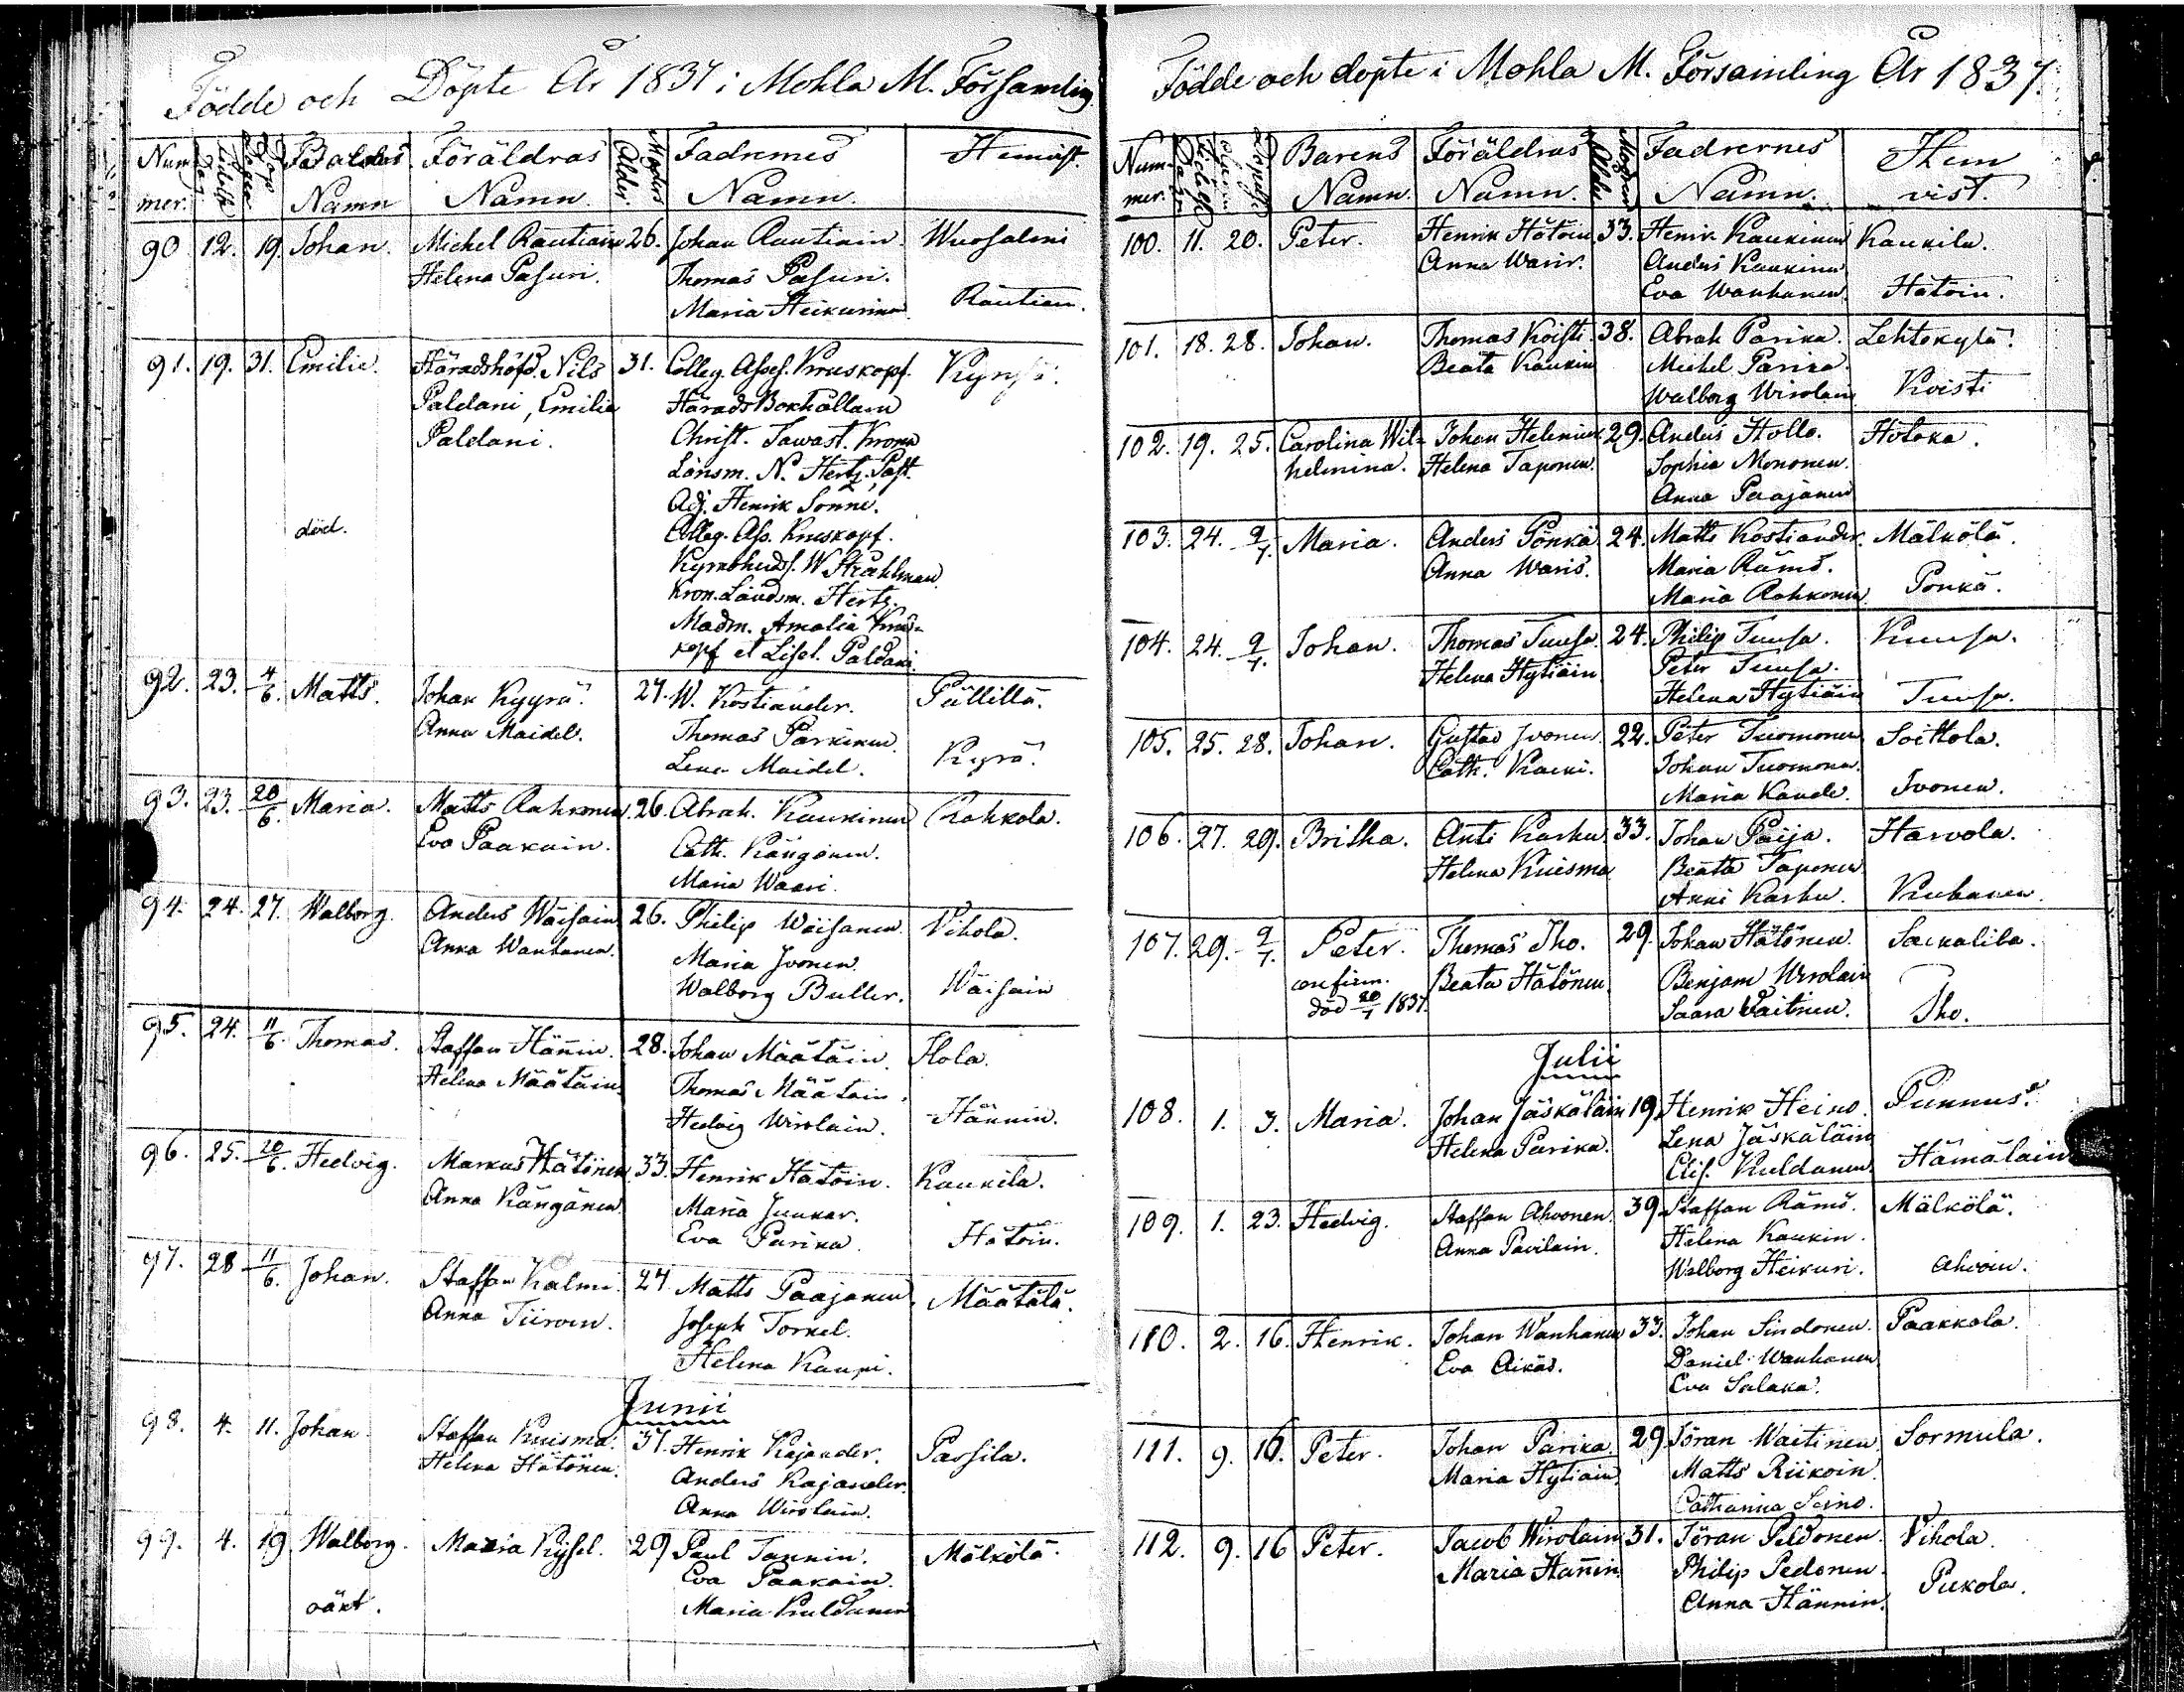 Födde och Döpte År 1837 i Mohla M. Församling
Num-
mer.
Namn
Föräldras
Namn.
Moders
Ålder
Faddrernes
Namn.
Hemvist.
90. 12. 19. Johan. Michel Rautiain 26. Johan Rautiain. Wuosalmi
Helena Pasuri. Thomas Pasuri.
Maria Heikurinen Rautien.
91. 19. 31. Emilie. Häradshöfd. Nils 31. Colleg. Asses. Kruskopf. Kyrysä.
Paldani, Emilie Härads Bokhållarn
Paldani. Christ. Tawast. Krono
Länsm. N. Hertz. Past.
Adj. Henrik Sonne.
död. Colleg. Ass. Kruskopf.
W Stråhlman
Kron. Ländsm. Hertz.
Madm. Amalia Krus-
kopf et Lisel. Paldani.
92. 23. 4/6. Matts. Johan Kyyrä. 27. W. Kostiander. Pällillä.
Anna Maidel. Thomas Parkinen.
Lena Maidel. Kyrä.
93. 23. 20/6. Maria. Matts Rahkonen. 26. Abrah. Kaukinen Rahkola.
Eva Paakain. Cath. Kängänen.
Maria Waari.
94. 24. 27. Walborg. Anders Wäisain 26. Philip Wäisanen. Vihola.
Anna Wanhanen. Maria Ivonen.
Walborg Buller. Wäisain
95. 24. 11/6. Thomas. Staffan Hännin. 28. Johan Määtäin. Ilola.
Helena Määtäin. Thomas Määtäin.
Hedvig Wirolain. Hännin.
96. 25. 20/6. Hedvig. Markus Hätönen 33. Henrik Hätöin. Kaukila.
Anna Kängänen. Maria Junkar.
Eva Parika. Hätöin.
97. 28 11/6. Johan. Staffan Kalmi. 27 Matts Paajanen. Määtälä.
Anna Tiiroin. Joseph Torkel.
Helena Kaupi.
Junii
98. 4. 11. Johan. Staffan Kuisma. 37. Henrik Kajander. Passila.
Helena Hätönen. Anders Kajander.
Anna Wirolain.
99. 4. 19 Walborg. Maria Kyssel. 29 Paul Tannin. Mälkölä.
Eva Paakain.
oäkt. Maria Kuldanen
Födde och dopte i Mohla M. Församling År 1837.
Num-
mer.
Barens
Namn.
Föräldras
Namn.
Moders
Ålder
Fadrernes
Namn.
Hem
vist.
100. 11. 20. Peter. Henrik Hätöin 33. Henrik Kaukinen Kaukila.
Anna Warir. Anders Kaukinen
Eva Wanhanen. Hätöin.
101. 18. 28. Johan. Thomas Koisti. 38. Abrah Parika. Lehtokylä.
Beata Kaukin Michel Parika.
Walborg Wirolain Koisti
102. 19. 25. Carolina Wil- Johan Helenius. 29. Anders Hollo. Hotoka.
helmina. Helena Taponen. Sophia Mononen.
Anna Paajanen
103. 24. 2/7. Maria. Anders Pönkä 24. Matts Kostiander. Mälkölä.
Anna Waris. Maria Rämö.
Maria Rahkonen Ponkä.
104. 24. 2/7. Johan. Thomas Tuusa. 24. Philip Tuusa. Kuusa.
Helena Hytiäin Peter Tuusa.
Helena Hytiäin Tuusa.
105. 25. 28. Johan. Gustav Ivonen. 22. Peter Tuomonen Soittola.
Cath. Johan Tuomonen.
Maria Kaude. Ivonen.
106. 27. 29. Britha. Anti Karhu. 33. Johan Paija. Harvola.
Helena Kuisma Beata Taponen
Anni Karhu. Kuhanen.
107. 29. 2/7. Peter. Thomas Iho. 29. Johan Hätönen. Saikalila.
confirm. Beata Hätönen. Benjam Wirolain
död 20/7 1837. Saara Waitinen. Iho.
Julii
108. 1. 3. Maria. Johan Jäskäläin 19. Henrik Heino. Punnus.
Helena Parika. Lena Jäskäläin
Elis. Kuldanen Hämäläin
109. 1. 23. Hedvig. Staffan Ahvonen. 39 Staffan Rämö. Mälkölä.
Anna Pavilain. Helena Kaukin.
Walborg Heikuri. Ahvoin.
110. 2. 16. Henrik. Johan Wanhanen 33. Johan Sindonen. Paakkola.
Eva Äikäs. Daniel Wanhanen
Eva Salaka.
111. 9. 16. Peter. Johan Parika. 29 Jöran Waitinen Sormula.
Maria Hytiäin. Matts Riikoin.
Catharina Seino.
112. 9. 16 Peter. Jacob Wirolain 31. Jöran Peldonen. Vihola.
Maria Hännin. Philip Pedonen.
Anna Hännin. Pukola.